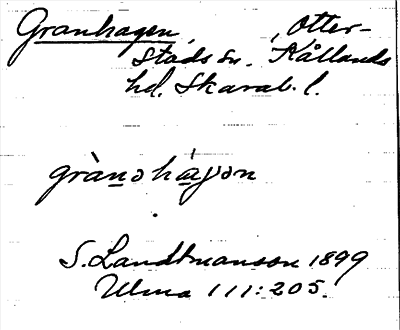 Granhagen, , Otter-
stads sn. Kållands
hd. Skarab. l.
grànəhágən
S. Landtmanson 1899
Ulma 111:205.